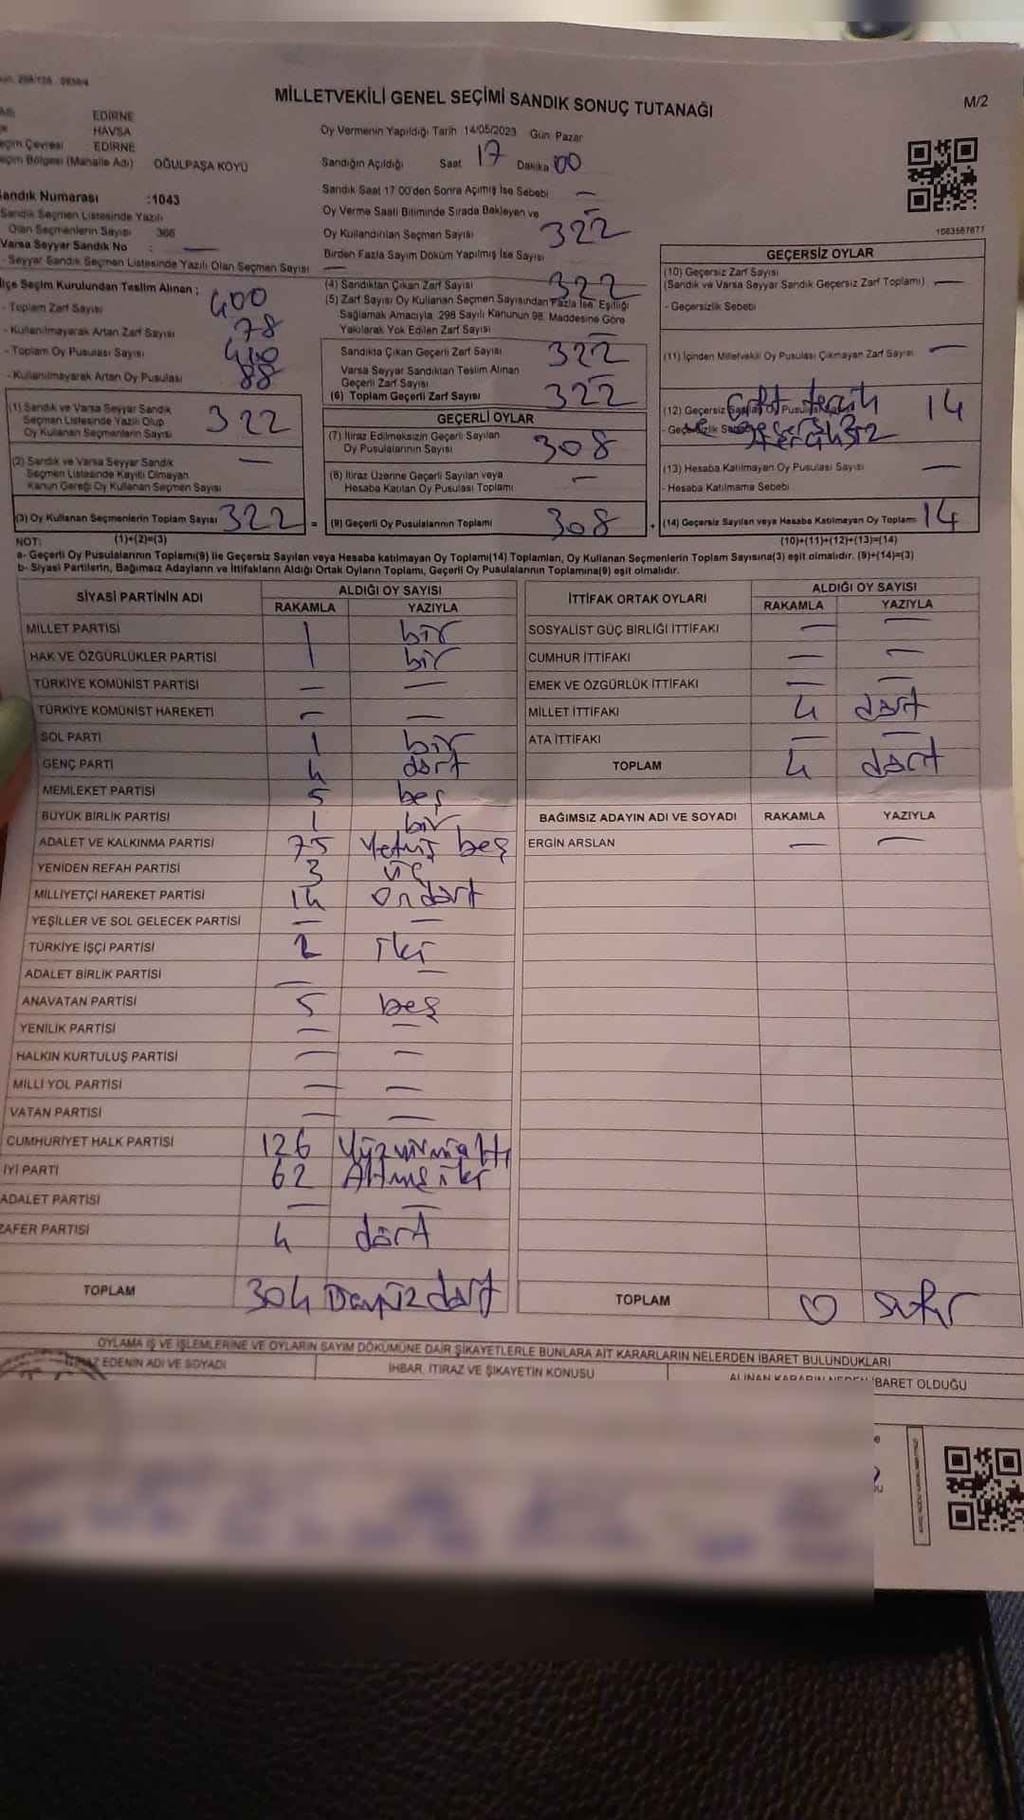 MİLLETVEKİLİ GENEL SEÇİMİ SANDIK SONUÇ TUTANAĞI
M/2
EDİRNE
HAVSA
EDİRNE
Seçim Bölgesi (Mahalle Adı) OĞULPAŞA KÖYÜ
Oy Vermenin Yapıldığı Tarih 14/05/2023 Gün Pazar
Sandığın Açıldığı Saat 17 Dakika 00
Sandık Saat 17 00'den Sonra Açımış İse Sebebi —
Oy Verme Saati Bitiminde Sırada Bekleyen ve
Oy Kullandırılan Seçmen Sayısı 322
Birden Fazla Sayım Döküm Yapılmış İse Sayısı
Sandık Numarası :1043
Sandık Seçmen Listesinde Yazılı
Olan Seçmenlerin Sayısı 366
Varsa Seyyar Sandık No : —
- Seyyar Sandık Seçmen Listesinde Yazılı Olan Seçmen Sayısı —
1083587877
İlçe Seçim Kurulundan Teslim Alınan ;
- Toplam Zarf Sayısı 400
- Kullanılmayarak Artan Zarf Sayısı 78
- Toplam Oy Pusulası Sayısı
- Kullanılmayarak Artan Oy Pusulası 88
(1) Sandık ve Varsa Seyyar Sandık
Seçmen Listesinde Yazılı Olup
Oy Kullanan Seçmenlerin Sayısı 322
(2) Sandık ve Varsa Seyyar Sandık
Seçmen Listesinde Kayıtlı Olmayan
Kanun Gereği Oy Kullanan Seçmen Sayısı —
(3) Oy Kullanan Seçmenlerin Toplam Sayısı 322 =
(4) Sandıktan Çıkan Zarf Sayısı 322
(5) Zarf Sayısı Oy Kullanan Seçmen Sayısından Fazla İse, Eşitliği
Sağlamak Amacıyla, 298 Sayılı Kanunun 98. Maddesine Göre
Yakılarak Yok Edilen Zarf Sayısı —
Sandıkta Çıkan Geçerli Zarf Sayısı 322
Varsa Seyyar Sandıktan Teslim Alınan
Geçerli Zarf Sayısı —
(6) Toplam Geçerli Zarf Sayısı 322
GEÇERLİ OYLAR
(7) İtiraz Edilmeksizin Geçerli Sayılan
Oy Pusulalarının Sayısı 308
(8) İtiraz Üzerine Geçerli Sayılan veya
Hesaba Katılan Oy Pusulası Toplamı —
(9) Geçerli Oy Pusulalarının Toplamı 308 +
GEÇERSİZ OYLAR
(10) Geçersiz Zarf Sayısı
(Sandık ve Varsa Seyyar Sandık Geçersiz Zarf Toplamı) —
- Geçersizlik Sebebi
(11) İçinden Milletvekili Oy Pusulası Çıkmayan Zarf Sayısı —
(12) Geçersiz 14
(13) Hesaba Katılmayan Oy Pusulası Sayısı —
- Hesaba Katılmama Sebebi
(14) Geçersiz Sayılan veya Hesaba Katılmayan Oy Toplamı 14
NOT: (1)+(2)=(3) (10)+(11)+(12)+(13)=(14)
a- Geçerli Oy Pusulalarının Toplamı(9) ile Geçersiz Sayılan veya Hesaba katılmayan Oy Toplamı(14) Toplamları, Oy Kullanan Seçmenlerin Toplam Sayısına(3) eşit olmalıdır. (9)+(14)=(3)
b- Siyasi Partilerin, Bağımsız Adayların ve İttifakların Aldığı Ortak Oyların Toplamı, Geçerli Oy Pusulalarının Toplamına(9) eşit olmalıdır.
SİYASİ PARTİNİN ADI ALDIĞI OY SAYISI
RAKAMLA YAZIYLA
MİLLET PARTİSİ 1 bir
HAK VE ÖZGÜRLÜKLER PARTİSİ 1 bir
TÜRKİYE KOMÜNİST PARTİSİ — —
TÜRKİYE KOMÜNİST HAREKETİ — —
SOL PARTİ 1 bir
GENÇ PARTİ 4 dört
MEMLEKET PARTİSİ 5 beş
BÜYÜK BİRLİK PARTİSİ 1 bir
ADALET VE KALKINMA PARTİSİ 75 Yetmiş beş
YENİDEN REFAH PARTİSİ 3 üç
MİLLİYETÇİ HAREKET PARTİSİ 14 ondört
YEŞİLLER VE SOL GELECEK PARTİSİ — —
TÜRKİYE İŞÇİ PARTİSİ 2 iki
ADALET BİRLİK PARTİSİ — —
ANAVATAN PARTİSİ 5 beş
YENİLİK PARTİSİ — —
HALKIN KURTULUŞ PARTİSİ — —
MİLLİ YOL PARTİSİ — —
VATAN PARTİSİ — —
CUMHURİYET HALK PARTİSİ 126 Yüzyirmialtı
İYİ PARTİ 62 Altmışiki
ADALET PARTİSİ — —
ZAFER PARTİSİ 4 dört
TOPLAM 304
İTTİFAK ORTAK OYLARI ALDIĞI OY SAYISI
RAKAMLA YAZIYLA
SOSYALİST GÜÇ BİRLİĞİ İTTİFAKI — —
CUMHUR İTTİFAKI — —
EMEK VE ÖZGÜRLÜK İTTİFAKI — —
MİLLET İTTİFAKI 4 dört
ATA İTTİFAKI — —
TOPLAM 4 dört
BAĞIMSIZ ADAYIN ADI VE SOYADI RAKAMLA YAZIYLA
ERGİN ARSLAN — —
TOPLAM 0 sıfır
OYLAMA İŞ VE İŞLEMLERİNE VE OYLARIN SAYIM DÖKÜMÜNE DAİR ŞİKAYETLERLE BUNLARA AİT KARARLARIN NELERDEN İBARET BULUNDUKLARI
İTİRAZ EDENİN ADI VE SOYADI İHBAR, İTİRAZ VE ŞİKAYETİN KONUSU ALINAN KARARIN NEDEN İBARET OLDUĞU